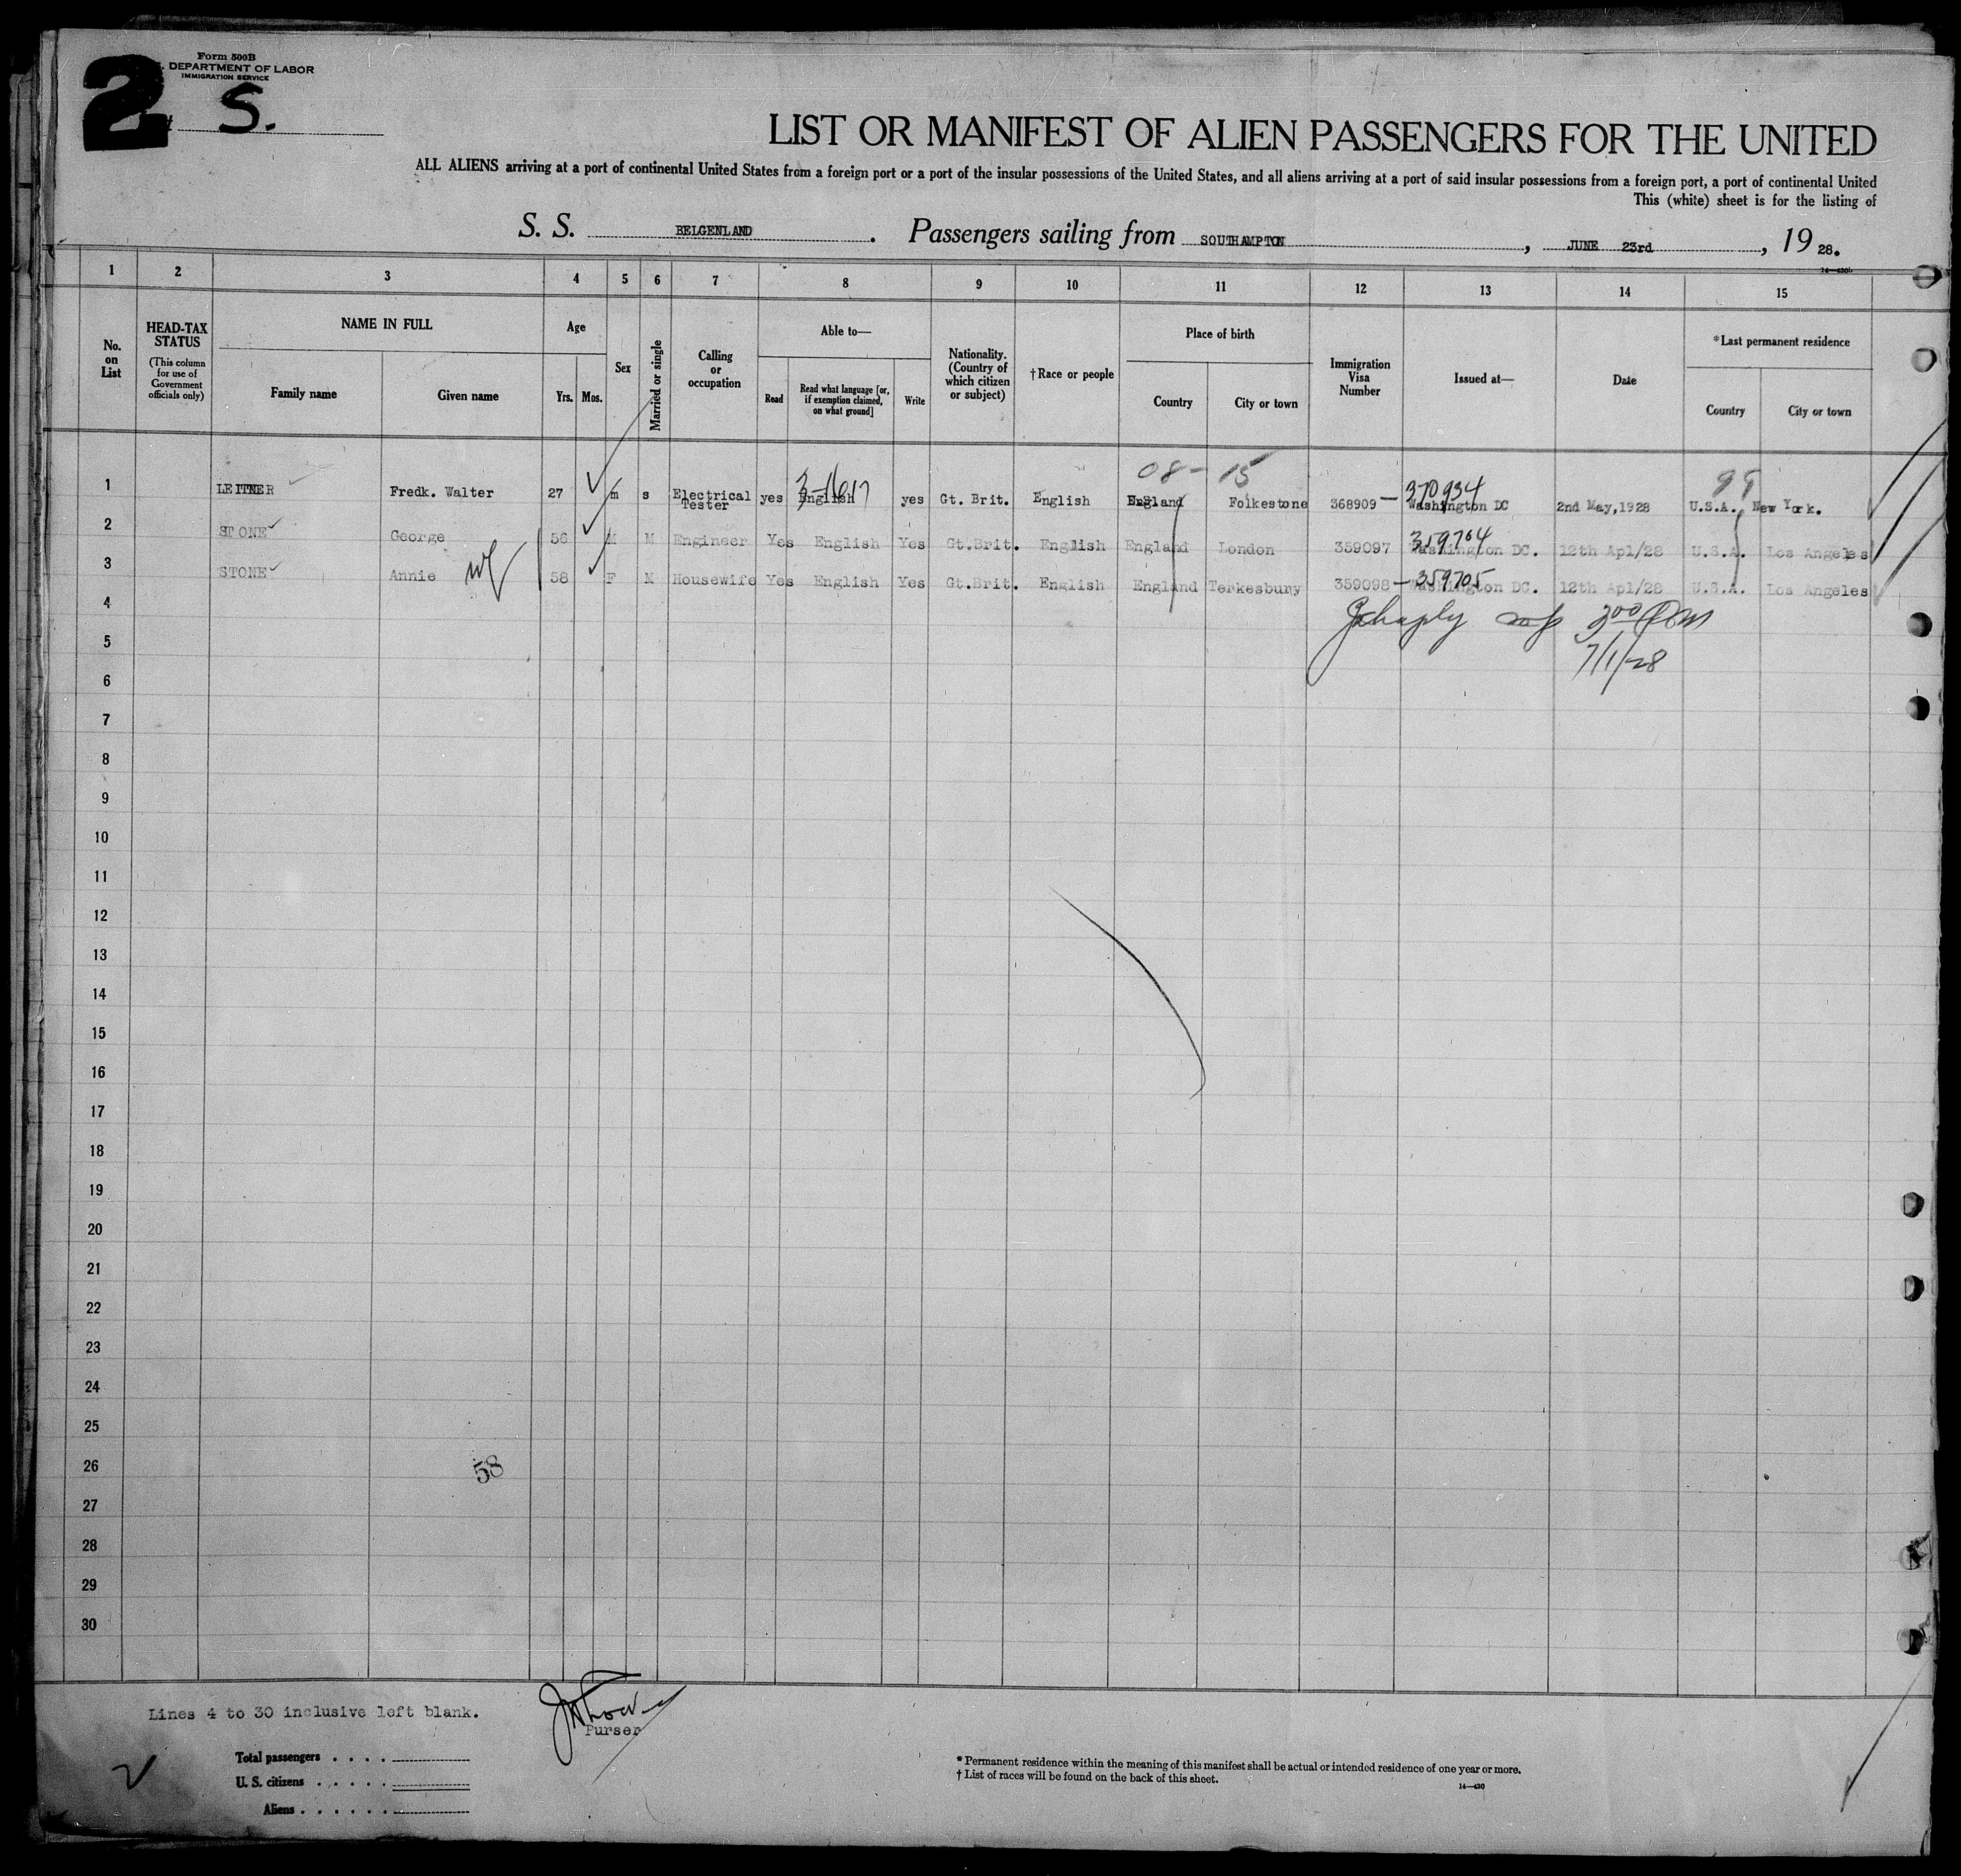 Form 500B
DEPARTMENT OF LABOR
IMMIGRATION SERVICE
2 S.
LIST OR MANIFEST OF ALIEN PASSENGERS FOR THE UNITED
ALL ALIENS arriving at a port of continental United States from a foreign port or a port of the insular possessions of the United States, and all aliens arriving at a port of said insular possessions from a foreign port, a port of continental United
This (white) sheet is for the listing of
S. S. BELGENLAND. Passengers sailing from SOUTHAMPTON, JUNE 23rd, 19 28.
14—430
1 2 3 4 5 6 7 8 9 10 11 12 13 14 15
No. on List
HEAD-TAX STATUS (This column for use of Government officials only)
NAME IN FULL
Family name
Given name
Age
Yrs.
Mos.
Sex
Married or single
Calling or occupation
Able to—
Read
Read what language [or, if exemption claimed, on what ground]
Write
Nationality. (Country of which citizen or subject)
†Race or people
Place of birth
Country
City or town
Immigration Visa Number
Issued at—
Date
*Last permanent residence
Country
City or town
08 - 15 99
3-1617 370934
1 LEITNER Fredk. Walter 27 m s Electrical Tester yes English yes Gt. Brit. English England Folkestone 368909 — Washington DC 2nd May, 1928 U.S.A. New York.
359704
2 STONE George 56 M M Engineer Yes English Yes Gt.Brit. English England London 359097 Washington DC. 12th Apl/28 U.S.A. Los Angeles
359705
3 STONE Annie wf 58 F M Housewife Yes English Yes Gt.Brit. English England Terkesbury 359098 — Washington DC. 12th Apl/28 U.S.A. Los Angeles
4
300 PM
5
7/1/28
6
7
8
9
10
11
12
13
14
15
16
17
18
19
20
21
22
23
24
25
26 58
27
28
29
30
Lines 4 to 30 inclusive left blank.
Purser
Total passengers
U. S. citizens
Aliens
* Permanent residence within the meaning of this manifest shall be actual or intended residence of one year or more.
† List of races will be found on the back of this sheet.
14—430